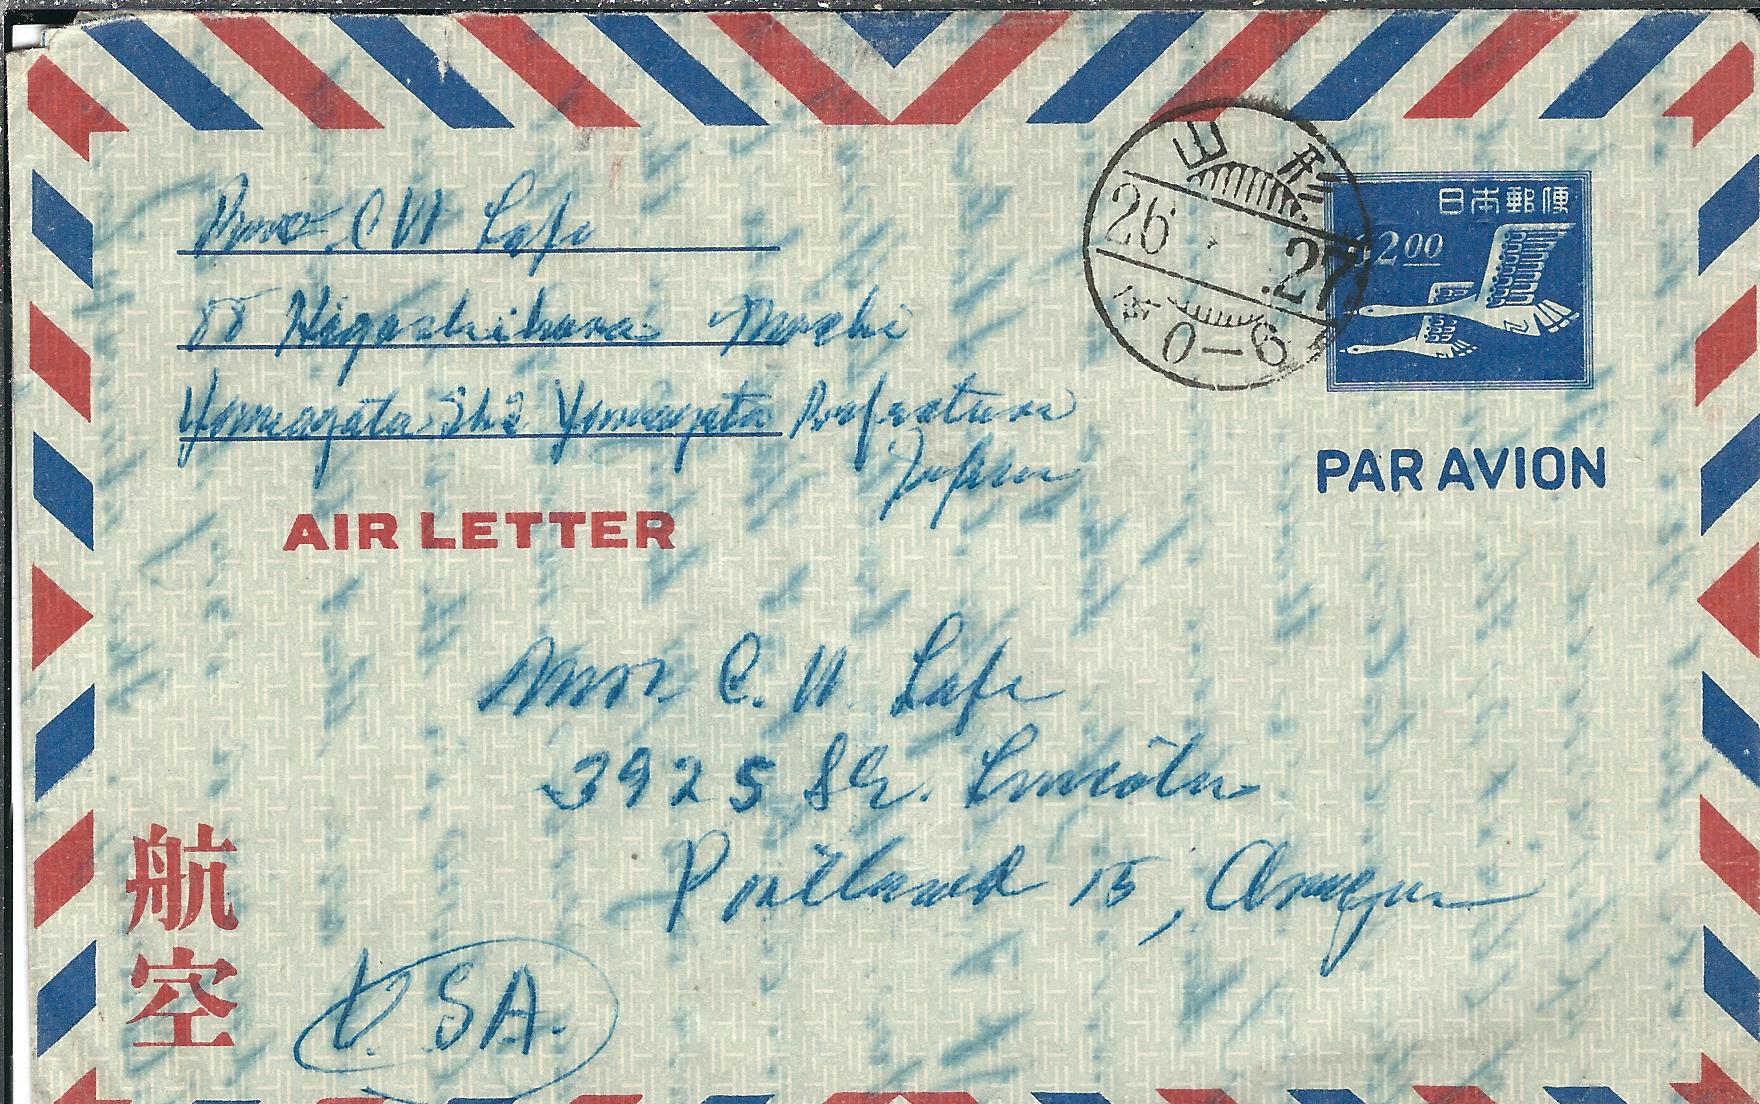 C W Lafe
88 Higashihara Machi
Yamagata Shi Yamagata Prefecture
Japan
AIR LETTER
山形
26 . 27
前 0-6
日本郵便
62.00
PAR AVION
Mrs C. W. Lafe
3925 SE. Lincoln
Portland 15, Oregon
航空
U.S.A.